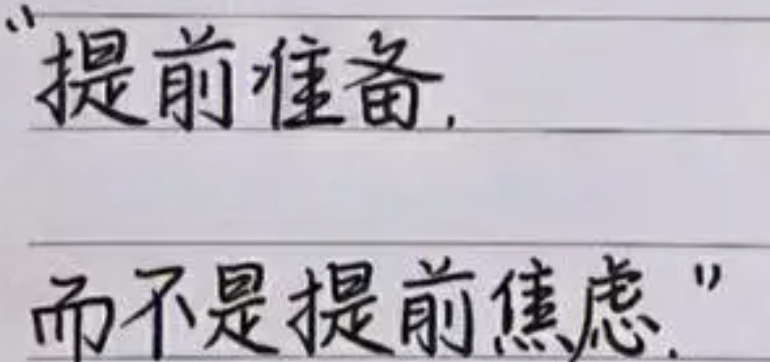 “提前准备.
而不是提前焦虑.”